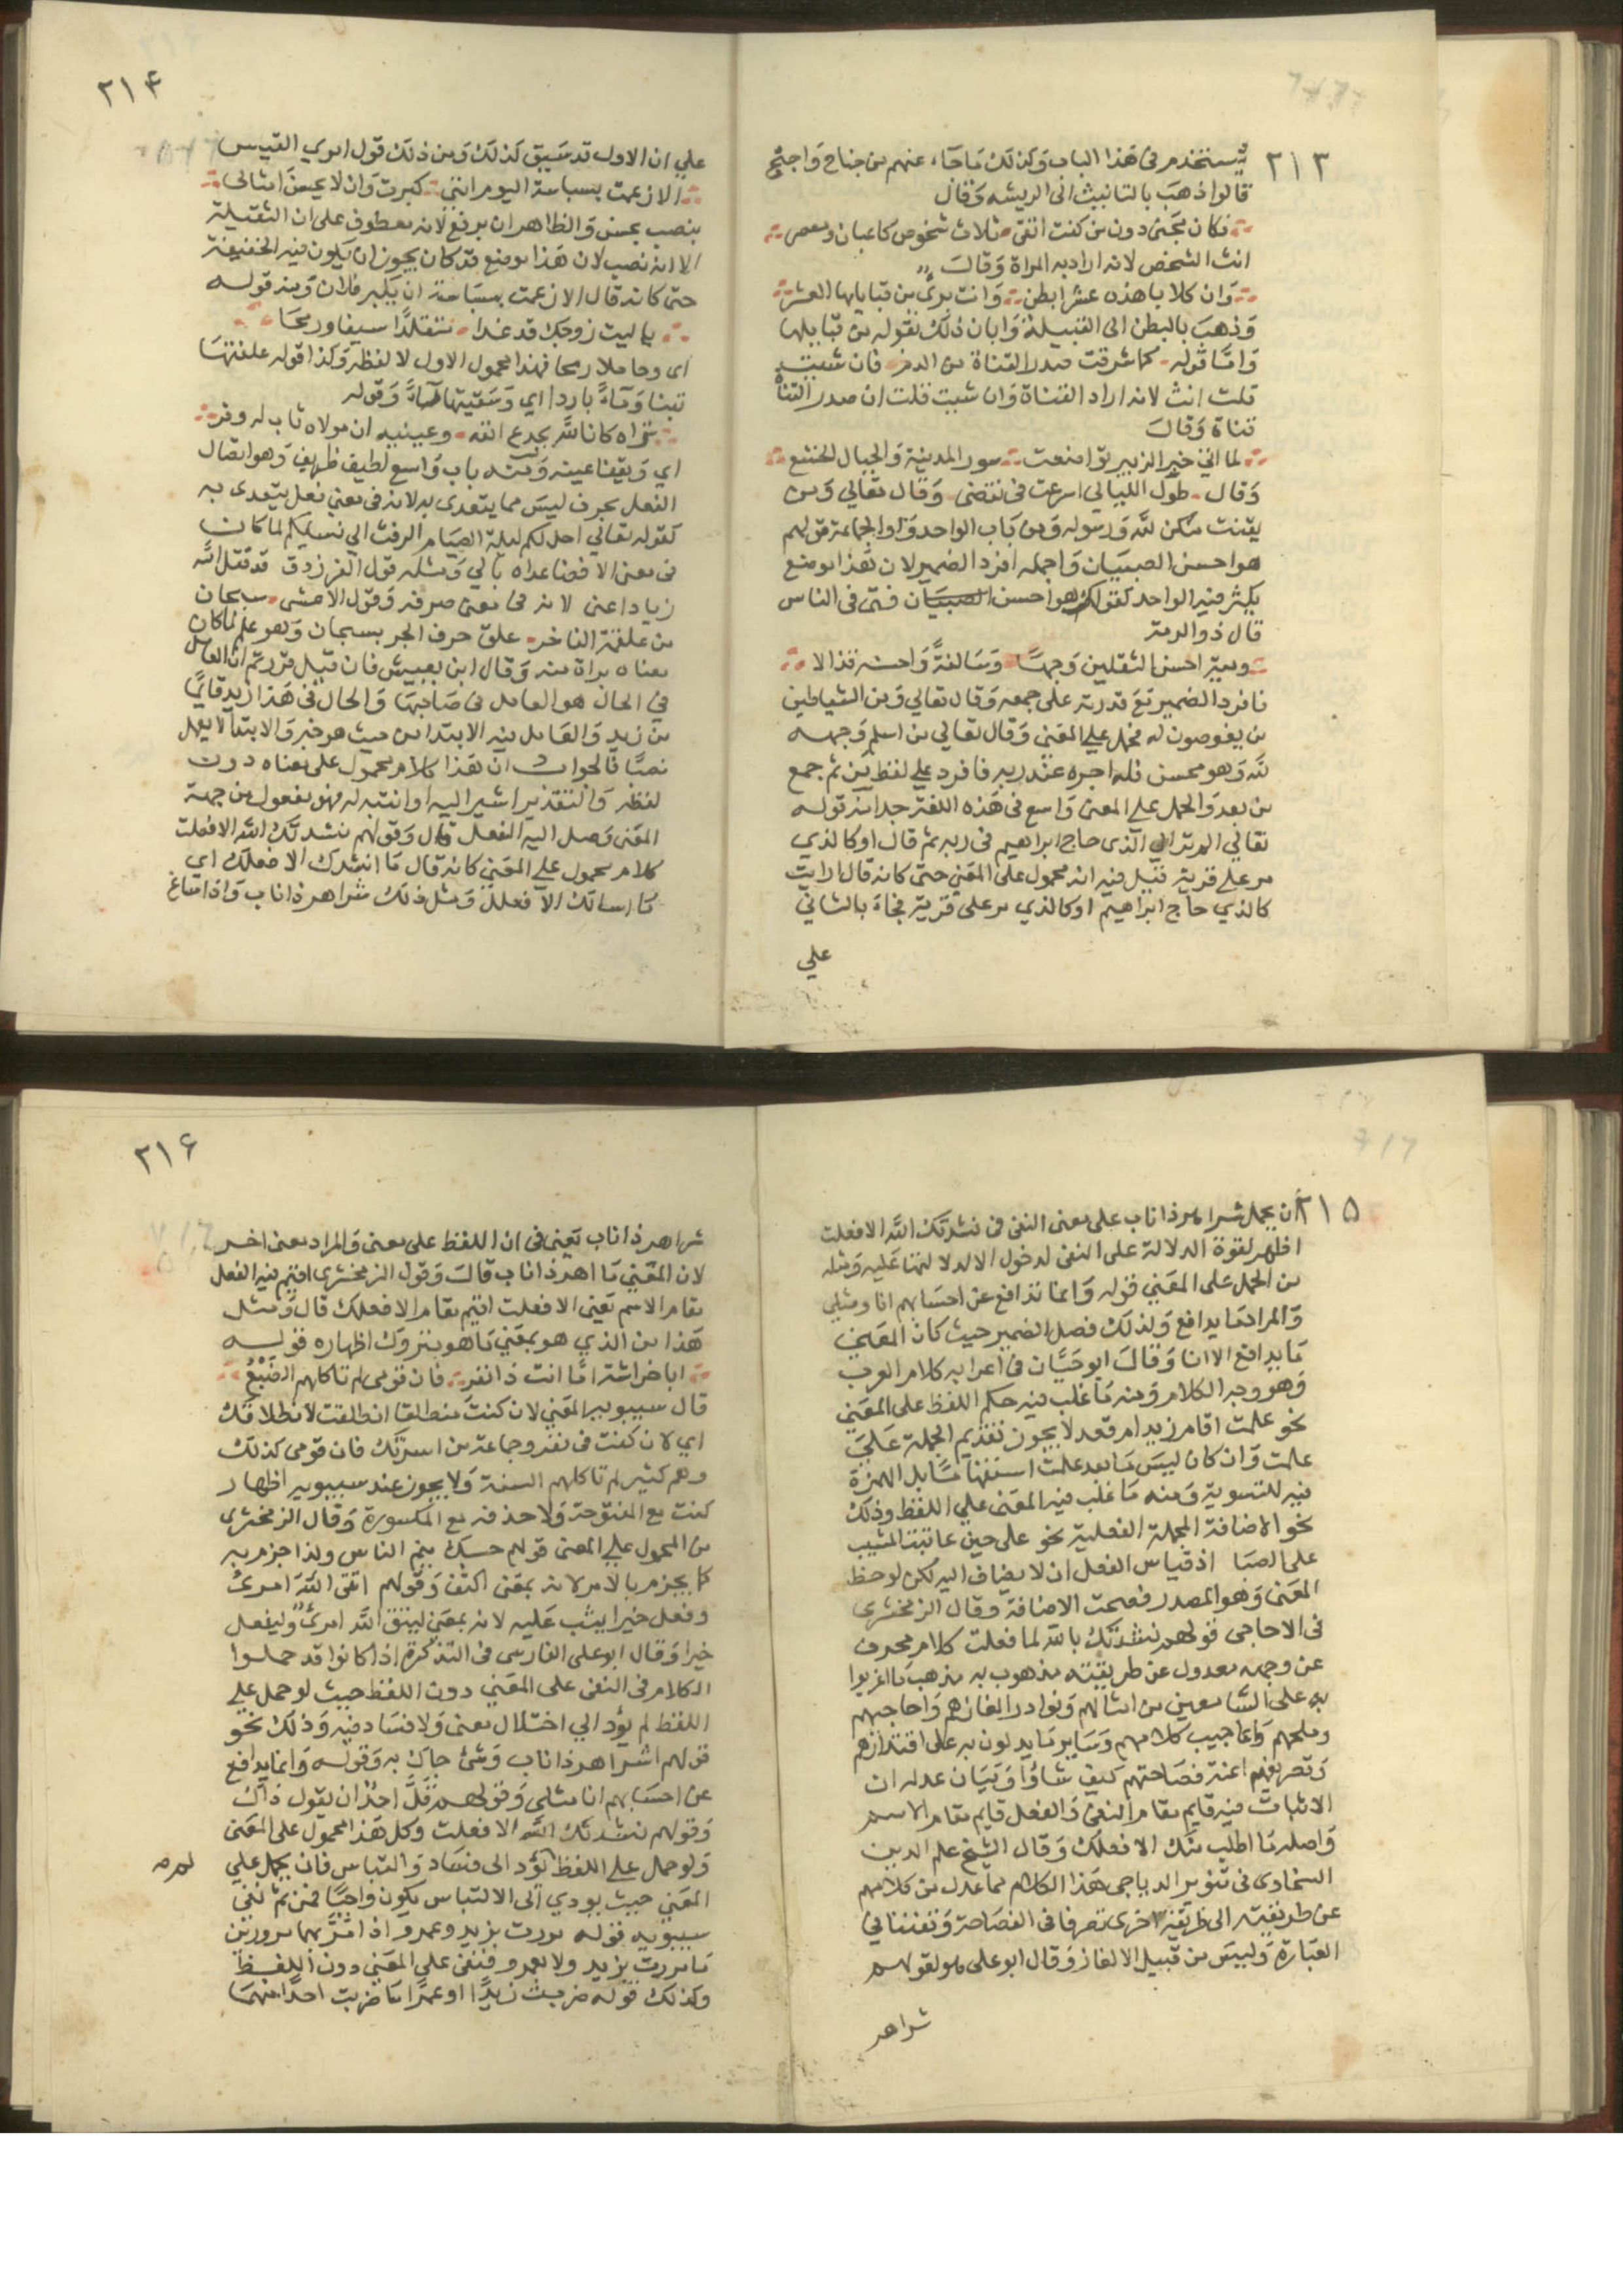 ٢١٣
يستخدم فى هَذا الباب وَكذلك مَا جَاء عنهم من جناح وَاجنح
قالوا ذهبَ بالتانيث الى الريشه وَقال
فكان مجَنى دون من كنت اتقى ثلاث شخوص كاعبان ومعصر
انث الشخص لانه اراد به المراة وَقالَ
وَان كلابا هذه عشر ابطن وَانت برئ من قبايلها العشر
وَذهبَ بالبطن الى القبيلة وَابان ذلك بقوله من قبايلها
وَامّا قوله كما شرقت صدر القناة من الدم فان شئت
قلت انث لانه اراد القناة وَان شيت قلت ان صدر القناة
قناة وَقالَ
لما اتى خبر الزبير تواضعت سور المدينة وَالجبال الخشع
وَقال طول الليالي اسرعت فى نقضى وَقال تعالي وَمن
يقنت منكن لله وَرسوله وَمن بَاب الواحد وَالجماعة قولهم
هو احسن الصبيَان وَاجمله افرد الضمير لان هَذا موضع
يكثر فيه الواحد كقولك هو احسن فتى فى الناس
قال ذو الرمة
وميّة احسن الثقلين وَجهًا وَسَالفةً وَاحسنه قذالا
فافرد الضمير مَع قدرته على جمعه وَقال تعالي وَمن الشياطين
من يغوصون له فحمل علي المعَنى وَقال تعالي من اسلم وَجهه
لله وَهو محسن فله اجره عند ربه فافرد علي لفظ مَن ثم جمع
من بعد وَالحمل علي المعنى وَاسع فى هَذه اللغة جدا منه قوله
تعالي الم تر الى الذى حاج ابراهيم فى ربه ثم قال اوكالذي
مر على قرية قيل فيه انه محمول على المعَنى حتى كانه قال ارايت
كالذي حاج ابراهيم اوكالذي مر على قرية فجاءَ بالثاني
علي
٢١٤
علي ان الاول قد سَبق كذلك وَمن ذلك قول امرئ القيس
الا زعمت بسباسة اليوم اننى كبرت وَان لا يحسنَ امثالى
بنصب يحسن وَالظاهر ان يرفع لانه معطوف على ان الثقيلة
الا انه نصب لان هَذا موضع قد كان يجوز ان يَكون فيه الخفيفة
حتى كانه قال الا زعمت بسبَاسة ان يكبر فلان وَمنه قوله
يا ليت زوجك قد غدا متقلدًا سيفا ورمحَا
اى وحاملا رمحا فهذا محمول الاول لا لفظه وَكذا قوله علفتهَا
تبنا وَمَاءً باردا اي وَسَقيتها مَاءً وَقوله
تراه كان الله يجدع انفه وعينيه ان مولاه ثاب له وفر
اي وَيفقا عينيه وَمنه باب وَاسع لطيف ظريف وَهو اتصال
الفعل بحرف ليسَ مما يتعدى به لانه فى معني فعل يتعدى به
كقوله تعالي احل لكم ليلة الصيَام الرفث الي نسايكم لما كان
فى معنى الافضا عداه بالي وَمثله قول الفرزدق قد قتل الله
زيادا عنى لانه فى معنى صرفه وَقول الاعشى سبحان
من علقمة الفاخر علق حرف الجر بسبحان وَهو علم لما كان
معناه براة منه وَقال ابن يعيش فان قيل قررتم ان العامل
في الحال هو العامل فى صَاحبهَا وَالحال فى هَذا زيد قايمًا
من زيد وَالعَامل فيه الابتدا من حيث هو خبر وَالابتدا لا يعمل
نصبًا فالجواب ان هَذا كلام محمول على معناه دون
لفظه وَالتقدير اشير اليه او انتبه له فهو مفعول من جهة
المعَنى وَصل اليه الفعل قال وَقولهم نشدتك الله الا فعلت
كلام محمول علي المعَني كانه قال مَا انشدك الا فعلك اي
مَا اسالك الا فعلك وَمثل ذلك شر اهر ذا ناب وَاذا ساغ
٢١٥
ان يحمل شر اهر ذا ناب على معنى النفى فى نشدتك الله الا فعلت
اظهر لقوة الدلالة على النفى لدخول الا لدلالتها عَليه وَمثله
من الحمل على المعَني قوله وَانما تدافع عن احسَابهم انا ومثلي
وَالمراد مَا يدافع وَلذلك فصل الضمير حيث كان المعَنى
مَا يدافع الا انا وَقالَ ابو حَيَّان فى اعرابه كلام العرب
وَهو وجه الكلام وَمنه مَا غلب فيه حكم اللفظ على المعَنى
نحو علمت اقام زيد ام قعد لا يجوز تقديم الجملة عَلي
علمت وَان كان ليسَ مَا بعد علمت استفهامًا بل الهمزة
فيه للتسوية وَمنه مَا غلب فيه المعَنى علي اللفظ وذلك
نحو الاضافة للجملة الفعلية نحو على حين عاتبت المشيب
على الصبَا اذ قياس الفعل ان لا يضاف اليه لكن لوحظ
المعَنى وَهو المصدر فصحت الاضافة وقال الزمخشرى
فى الاحاجى قولهم نشدتك بالله لما فعلت كلام محرف
عن وجهه معدول عن طريقته مذهوب به مذهب مَا اغربوا
به على السَّامعين من امثالهم وَنوادر الغازهم وَاحاجيهم
وملحهم وَاعاجيب كلامهم وَسَاير مَا يدلون به على اقتدارهم
وَتصريفهم اعنة فصَاحتهم كيف شاؤا وَبيَان عدله ان
الاثبات فيه قايم مقام النفى وَالفعل قايم مقام الاسم
وَاصله مَا اطلب منك الا فعلك وَقال الشيخ علم الدين
السخاوى فى تنوير الدياجى هَذا الكلام مما عدل من كلامهم
عن طريقته الى طريقة اخرى تصرفا فى الفصَاحة وَتفننا في
العبَارة وَليسَ من قبيل الالغاز وَقال ابو على هو لقولهم
شر اهر
٢١٦
شر اهر ذا ناب يعَنى فى ان اللفظ على معنى وَالمراد معنى اخر
لان المعَني مَا اهر ذا ناب قالَ وَقول الزمخشرى اقيم فيه الفعل
مقام الاسم يعَنى الا فعلت اقيم مقام الا فعلك قال وَمثل
هَذا من الذي هو بمعَني مَا هو متروك اظهاره قوله
ابا خراشة امّا انت ذا نفر فان قومى لم تاكلهم الضَّبُعُ
قال سيبويه المعَني لان كنتَ منطلقا انطلقت لانطلاقك
اي لان كنت فى نفر وجماعة من اسرتك فان قومى كذلك
وهم كثير لم تاكلهم السنة وَلا يجوز عند سيبويه اظهار
كنت مع المفتوحة وَلا حذفه مع المكسورة وَقال الزمخشرى
من المحمول علي المعنى قولهم حسبك ينم الناس ولذا جزم به
كما يجزم بالامر لانه بمعَنى اكفف وَقولهم اتقى اللهَ امرئُ
وفعل خيرا يثب عَليه لانه بمعَنى ليتق الله امرئ وليفعل
خيرا وَقال ابو على الفارسى فى التذكرة اذا كانوا قد حملوا
الكلام فى النفى على المعَني دون اللفظ حيث لو حمل علي
اللفظ لم يؤد الي اختلال معنى وَلا فسَاد فيه وَذلك نحو
قولهم شر اهر ذا ناب وَشئ جاءَ بك وَقوله وَانما يدافع
عن احسَابهم انا مثلى وَقولهم قَلَّ احدٌ ان يقول ذاكَ
وَقولهم نشدتك الله الا فعلت وكل هَذا محمول على المعَنى
وَلو حمل علي اللفظ لم يؤد الى فسَاد وَالتباس فان يحمل علي
المعَني حيث يودي الى الالتباس يكون واجبًا فمن ثم نفى
سيبويه قوله مررت بزيد وعمرو اذا مرَّ بهما مرورين
مَا مررت بزيد ولا بعمرو فنفى على المعَني دون اللفظ
وكذلك قوله ضربت زيدًا او عمرًا مَا ضربت احدًا منهمَا